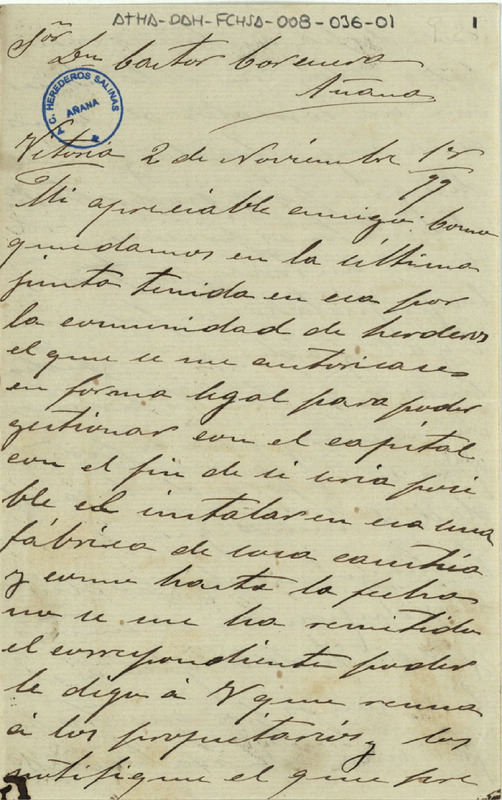 ATHA-DAH-FCHSA-008-036-01
1
Sor Dn Castor Corcuera
Añana
A. C. HEREDEROS SALINAS
AÑANA
Vitoria 2 de Noviembre 1º/99
Mi apreciable amigo: Como
quedamos en la última
junta tenida en esa por
la comunidad de herderos
el que se me autorizase
en forma legal para poder
gestionar con el capital
con el fin de si seria posi
ble el instalar en esa una
fábrica de sosa caustica
y como hasta la fecha
no se me ha remitido
el correspondiente poder
le digo á V que reuna
á los propietarios y les
notifique el que pre